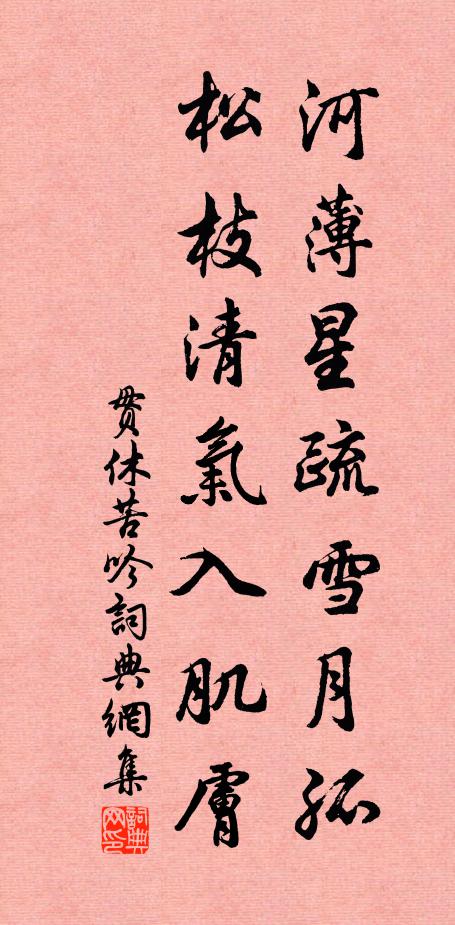 河薄星疏雪月孤
松枝清氣入肌膚
貫休苦吟詞典網集
詞典網印